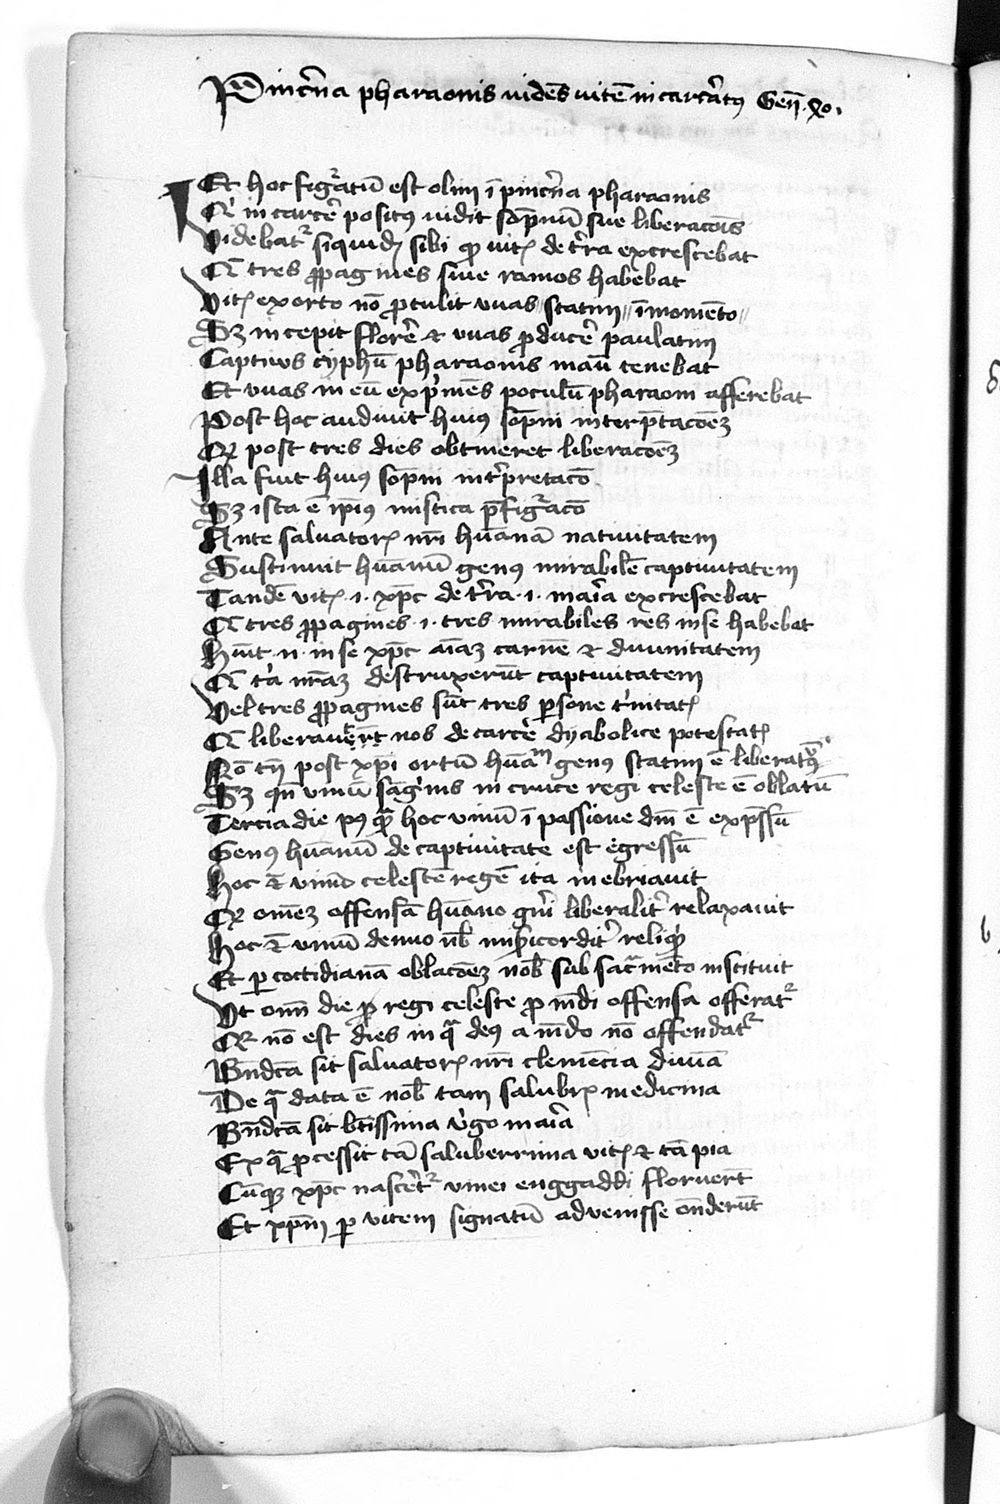 Pinc̄na pharaonis uidēs uitē in carc̄atꝰ Geñ. xo.
Et hoc figᵃtū est olim ī pinc̄na pharaonis
Qͥ in carc̄e positꝰ uidit sōpnū sue liberacōis
Videbatᷣ siquidē sibi ꝙ uitꝭ de tr̄ra excrescebat
Q̄ tres ꝓpagines siue ramos habebat
Vitꝭ exorto nō ꝓtulit vuas statim ī momēto
Sꝫ incepit florē ⁊ vuas ꝓducē paulatim
Captiuꝰ cyphū pharaonis manū tenebat
Et vuas in eū exp̄mēs poculū pharaoni afferebat
Post hoc audiuit huiꝰ sōpni interp̄tacōeꝫ
Qꝫ post tres dies obtineret liberacōeꝫ
Illa fuit huiꝰ sōpni int̄pretacō
Sꝫ ista ē ip̄ius mistica p̄figᵃcō
Ante saluatorꝭ nr̄i hūanā natiuitatem
Sustinuit hūanū genꝰ mirabilē captiuitatem
Tandē vitꝭ .i. xp̄c de tr̄ra .i. maͥa excrescebat
Q̄ tres ꝓpagines .i. tres mirabiles res in se habebat
Huīt .n. in se xp̄c aīaꝫ carnē ⁊ diuinitatem
Q̄ tͥa nr̄aꝫ destruxerūt captiuitatem
Vel tres ꝓpagines sūt tres ꝑsone tͥnitatꝭ
Q̄ liberauer̄t nos de carc̄e dyabolice potestatꝭ
Nō tn̄ post xp̄i ortū hūaᵐ genꝰ statim ē liberatū
Sꝫ qn̄ vinū sāgͥnis in cruce regi celeste ē oblatū
Tercia die pꝰ qᵃ hoc vinū ī passione dm̄ ē exp̄ssū
Genꝰ hūanū de captiuitate est egressū
Hoc ē vinū celestē regē ita inebriauit
Qꝫ om̄eꝫ offensā hūano gn̄i liberalit̄ relaxauit
Hoc ē vinū denuo nob̄ mīsericordit̄ reliqͥt
Et ꝑ cottidianā oblacōeꝫ nob̄ sub sacᵃmēto instituit
Vt om̄i die ꝓ regi celeste ꝓ mūdi offensa offeratᷣ
Qꝫ nō est dies in qᵃ deꝰ a mūdo nō offendatᷣ
Bn̄dcā sit saluatorꝭ nr̄i clemēcia diuīa
De qᵃ data ē nob̄ tam salubrꝭ medicina
Bn̄dcā sit btīssima vͥgo maͥa
Ex qᵃ ꝓcessit tā saluberrima vitꝭ ⁊ tā pia
Cūqꝫ xp̄c nascēt̄ᷣ vinei enggaddi floruer̄t
Et xp̄m ꝑ vitem signatū aduenisse on̄derūt